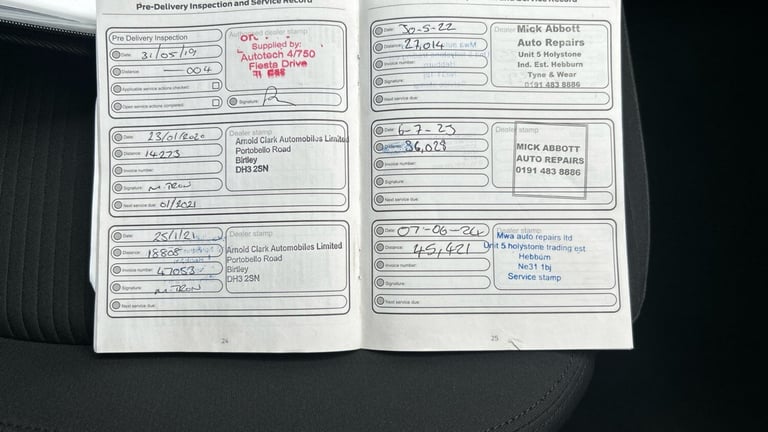 Pre-Delivery Inspection and Service Record
Pre Delivery Inspection
Date: 31/05/19
Distance: 004
Applicable service actions checked:
Open service actions completed:
dealer stamp
Supplied by:
Autotech 4/750
Fiesta Drive
Signature:
Date: 23/01/2020
Distance: 14273
Invoice number:
Signature: M-TRON
Next service due: 01/2021
Dealer stamp
Arnold Clark Automobiles Limited
Portobello Road
Birtley
DH3 2SN
Date: 25/1/21
Distance: 18808
Invoice number: 47053
Signature: M-TRON
Next service due:
Dealer stamp
Arnold Clark Automobiles Limited
Portobello Road
Birtley
DH3 2SN
24
Service Record
Date: 30-5-22
Distance: 27,014
Invoice number:
Signature:
Next service due:
Dealer
Mick Abbott
Auto Repairs
Unit 5 Holystone
Ind. Est. Hebburn
Tyne & Wear
0191 483 8886
Date: 6-7-23
Distance: 36,028
Invoice number:
Signature:
Next service due:
Dealer stamp
MICK ABBOTT
AUTO REPAIRS
0191 483 8886
Date: 07-06-24
Distance: 45,421
Invoice number:
Signature:
Next service due:
Dealer stamp
Mwa auto repairs ltd
Unit 5 holystone trading est
Hebburn
Ne31 1bj
Service stamp
25